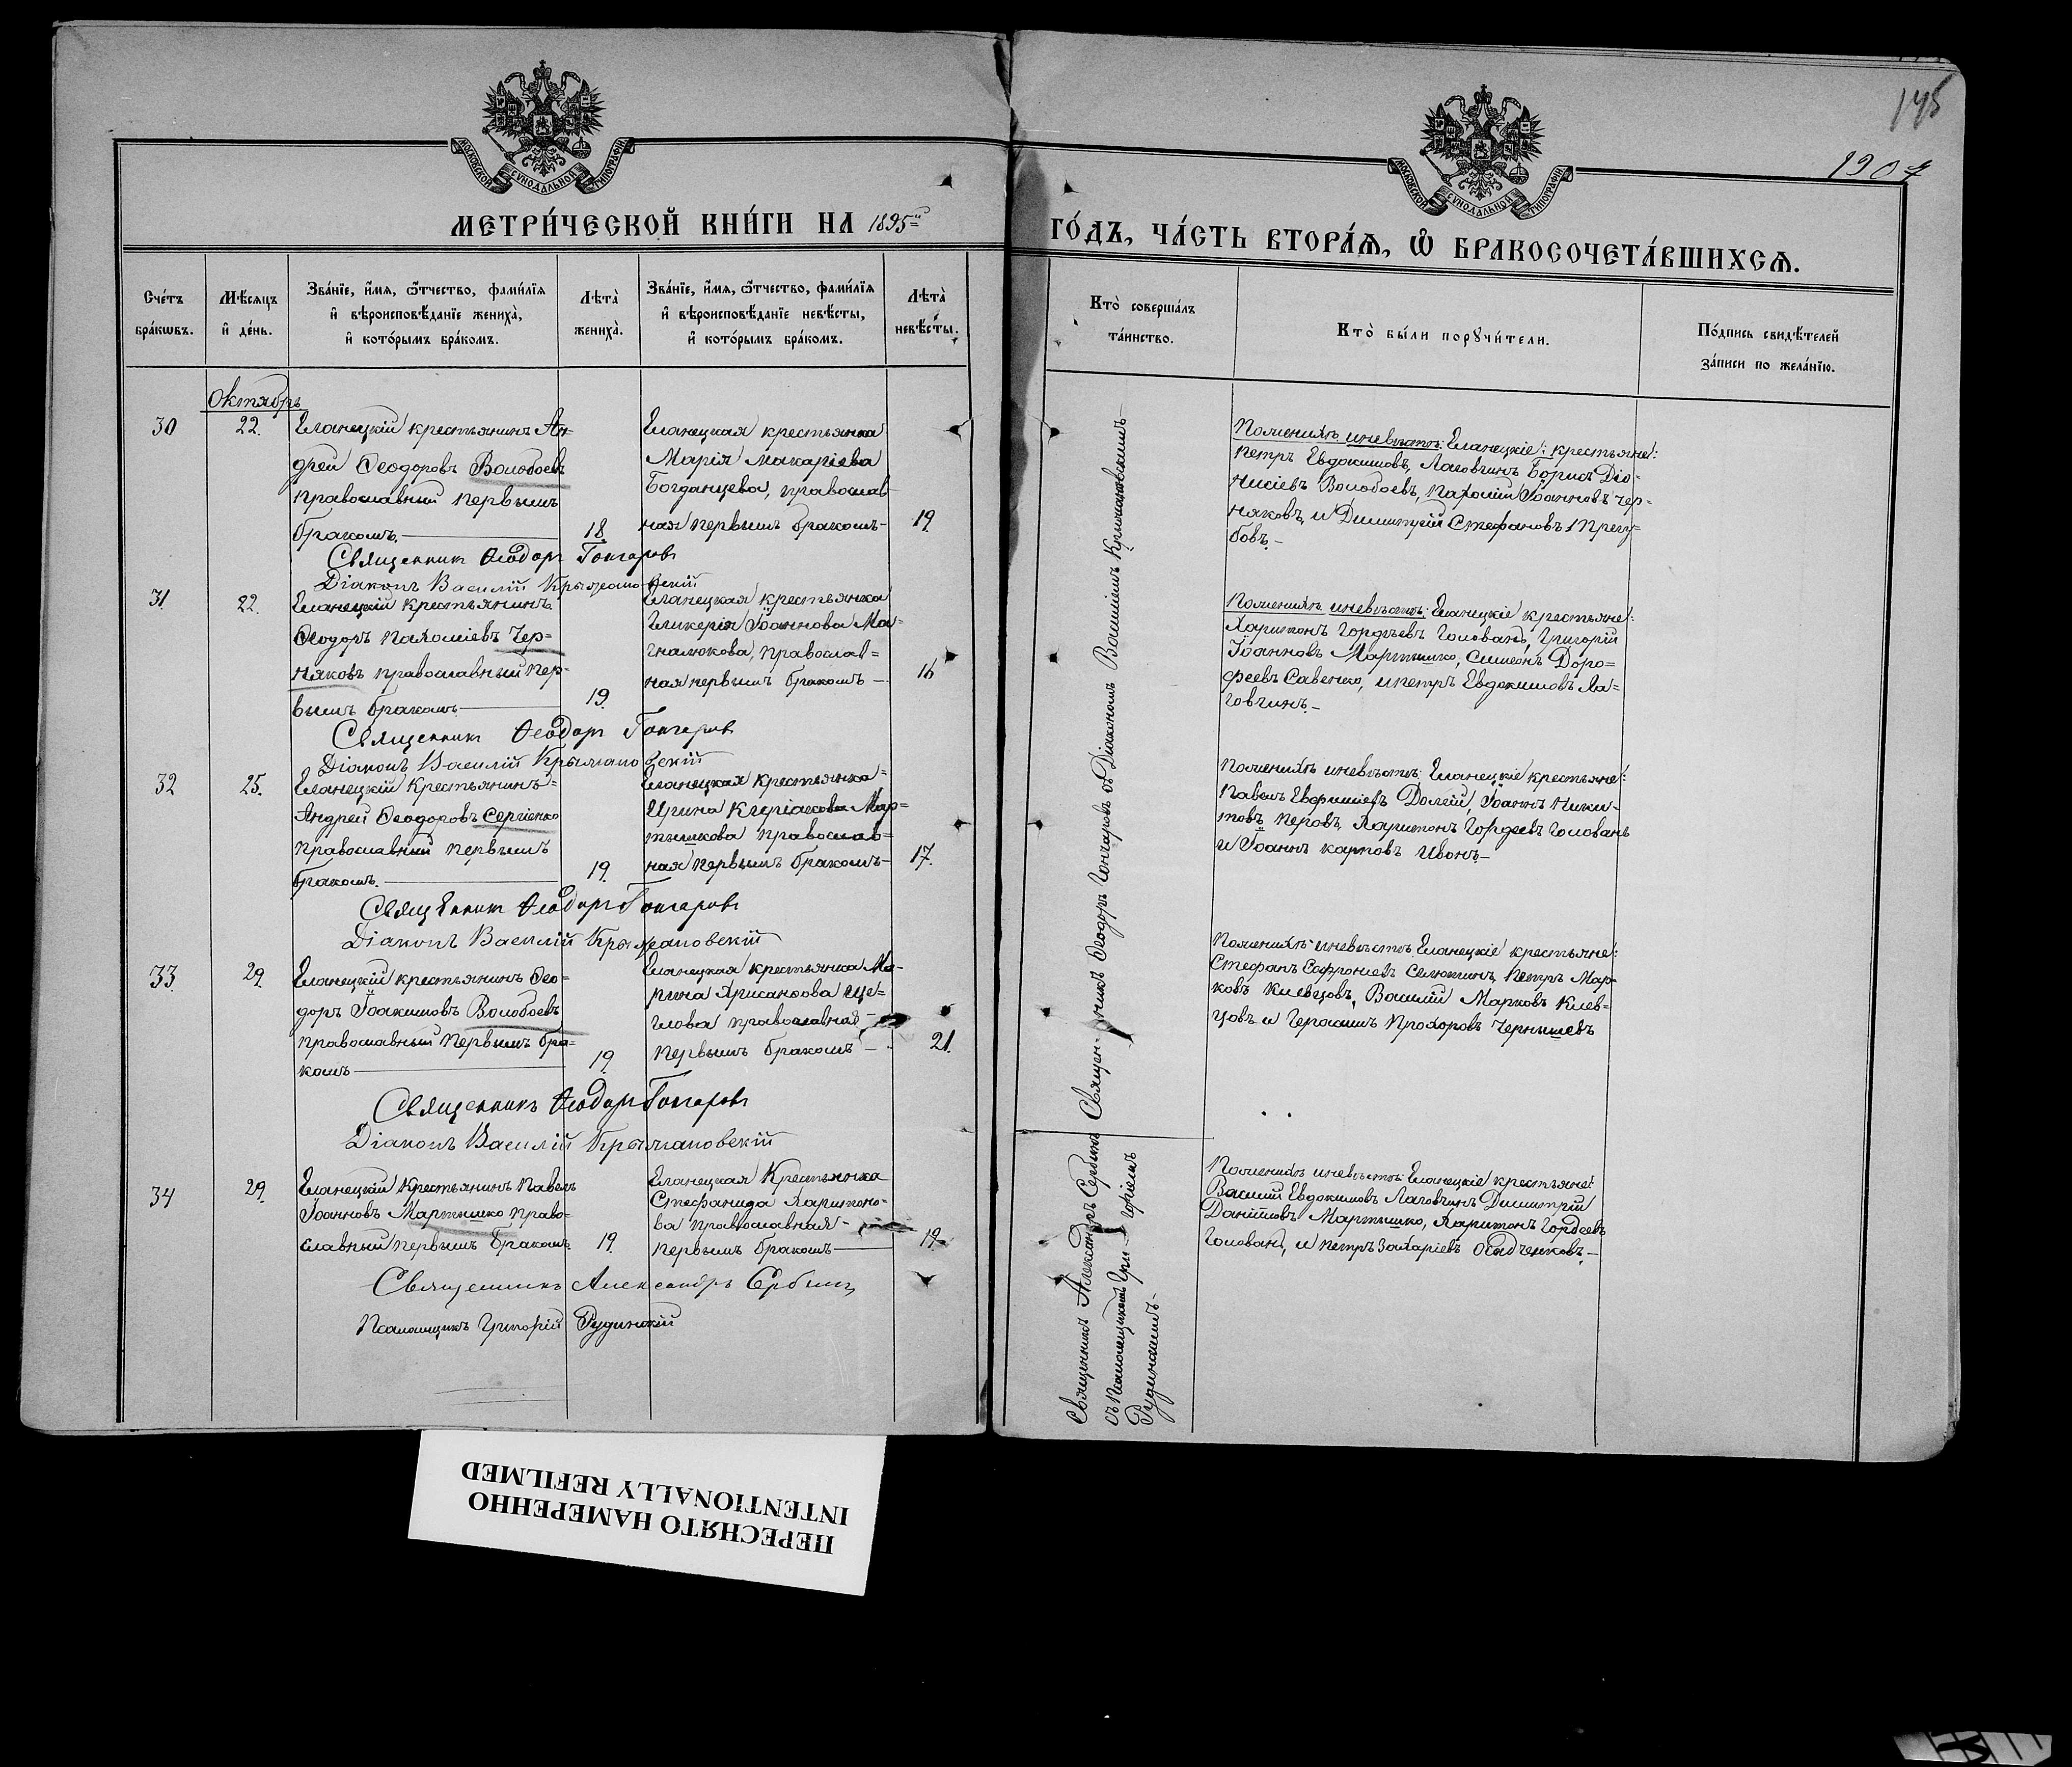 145
1907
МОСКОВСКОЙ СѴНОДАЛЬНОЙ ТИПОГРАФІИ
МОСКОВСКОЙ СѴНОДАЛЬНОЙ ТИПОГРАФІИ
МЕТРИ́ЧЕСКОЙ КНИ́ГИ НА 1895й
ГО́ДЪ, ЧА́СТЬ ВТОРА́Ѧ, Ѽ БРАКОСОЧЕТА́ВШИХСѦ.
Сче́тъ бра́кѡвъ.
Мѣ́сяцъ и҆ де́нь.
Зва́нїе, и҆́мя, ѻ҆́тчество, фами́лїя
и҆ вѣроисповѣ́данїе жениха̀,
и҆ кото́рымъ бра́комъ.
Лѣта̀ жениха̀.
Зва́нїе, и҆́мя, ѻ҆́тчество, фами́лїя
и҆ вѣроисповѣ́данїе невѣ́сты,
и҆ кото́рымъ бра́комъ.
Лѣта̀ невѣ́сты.
Кто̀ соверша́лъ та́инство.
Кто̀ бы́ли порꙋчи́тели.
По́дпись свидѣ́телей
за́писи по жела́нїю.
Октябрь
30
22.
Еланецкій крестьянинъ Ан=
дрей Ѳеодоровъ Волобоевъ
православный первымъ
бракомъ.
18.
Еланецкая крестьянка
Марія Макаріева
Богданцева, православ
ная первымъ бракомъ-
19.
Поженихѣ иневѣстѣ: Еланецкіе крестьяне:
Петръ Евдокимовъ, Лаговчинъ Борисъ Діо-
нисіевъ Волобоевъ, Пахомій Іоанновъ Чер-
няковъ, и Димитрій Стефановъ Прегу=
бовъ.-
Священникъ Ѳеодоръ Гончаровъ
Діаконъ Василій Крыжановскій
31.
22.
Еланецкій крестьянинъ
Ѳеодоръ Пахоміевъ Чер=
няковъ православный пер-
вымъ бракомъ
19.
Еланецкая крестьянка
Гликерія Іоаннова Ма-
гналюкова, православ=
ная первымъ бракомъ-
16
Поженихѣ иневѣстѣ: Еланецкіе крестьяне:
Харитонъ Гордѣевъ Головань, Григорій
Іоанновъ Мартышко, Симеонъ Доро-
феевъ Савенко, и Петръ Евдокимовъ Ла=
говчинъ.-
Священникъ Ѳеодоръ Гончаровъ
Діаконъ Василій Крыжановскій
32
25.
Еланецкій Крестьянинъ=
Андрей Ѳеодоровъ Сергіенко
православный первымъ
бракомъ.
19.
Еланецкая Крестьянка=
Ирина Киріакова Мар=
тышкова православ=
ная первымъ бракомъ-
17.
Поженихѣ иневѣстѣ: Еланецкіе крестьяне:
Павелъ Евфиміевъ Долгій, Іоаннъ Ники-
товъ Перовъ, Харитонъ Гордеевъ Головань
и Іоаннъ карповъ Ивонъ.-
Священникъ Ѳеодоръ Гончаровъ
Діаконъ Василій Крыжановскій
33.
29.
Еланецкій крестьянинъ Ѳео-
доръ Іоакимовъ Волобоевъ
православный первымъ бра=
комъ
19.
Еланецкая крестьянка Ма-
рина Хрисанѳова Ще=
глова православная-
первымъ бракомъ-
21.
Поженихѣ иневѣстѣ: Еланецкіе крестьяне:
Стефанъ Софроніевъ Селютинъ, Петръ Мар-
ковъ Киевцовъ, Василій Марковъ Киев-
цовъ и Герасимъ Прохоровъ Чернышевъ
Священникъ Ѳеодоръ Гончаровъ
Діаконъ Василій Крыжановскій
34
29.
Еланецкій Крестьянинъ Павелъ
Іоанновъ Мартышко право-
славный первымъ бракомъ
19.
Еланецкая Крестьянка
Стефанида Харитоно-
ва православная-
первымъ бракомъ
19.
Поженихѣ иневѣстѣ: Еланецкіе крестьяне:
Василій Евдокимовъ Лаговчинъ Димитрій
Даніиловъ Мартышко, Харитонъ Гордеевъ
Головань, и Петръ Захаріевъ Осадченковъ.-
Священникъ Александръ Сербинъ
Псаломщикъ Григорій Рудинскій
Священникъ Ѳеодоръ Гончаровъ съ Діакономъ Василіемъ Крыжановскимъ-
Священникъ Александръ Сербинъ
съ Псаломщикомъ Гри-горіемъ
Рудинскимъ-
ПЕРЕСНЯТО НАМЕРЕННО
INTENTIONALLY REFILMED